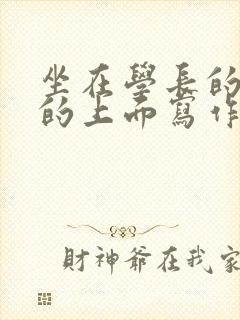 坐在學長的
的上而寫作
財神爺在我家